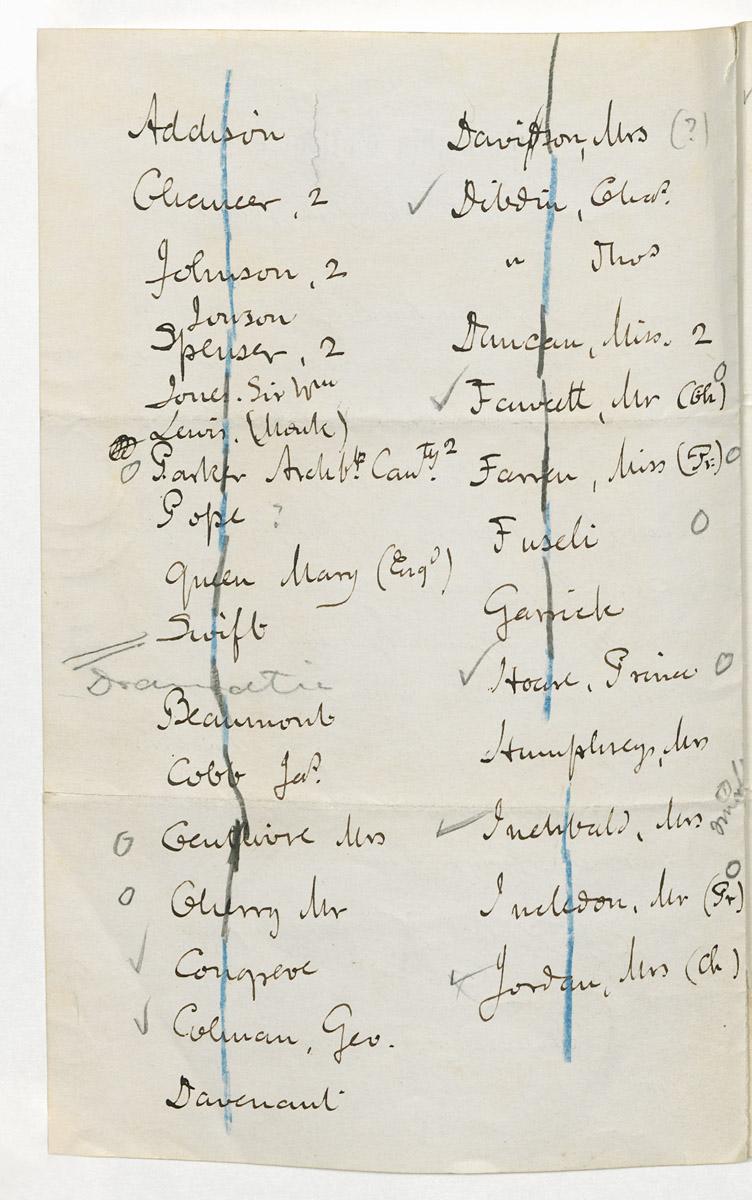 Addison
Chaucer, 2
Johnson, 2
Jonson
Spenser, 2
Jones. Sir Wm
Lewis. (Monk)
Parker Archbp. Canty. 2
Pope ?
Queen Mary (Engd)
Swift
Dramatic
Beaumont
Cobb Jas.
Centlivre Mrs
Cherry Mr
Congreve
Colman, Geo.
Davenant
Davidson, Mrs (?)
Dibdin, Chas.
" Thos
Duncan, Miss. 2
Fawcett, Mr (Ch)
Farren, Miss (Pr.)
Fuseli
Garrick
Hoare, Prince
Humphreys, Mrs
Inchbald, Mrs
Incledon, Mr (Pr)
Jordan, Mrs (Ch)